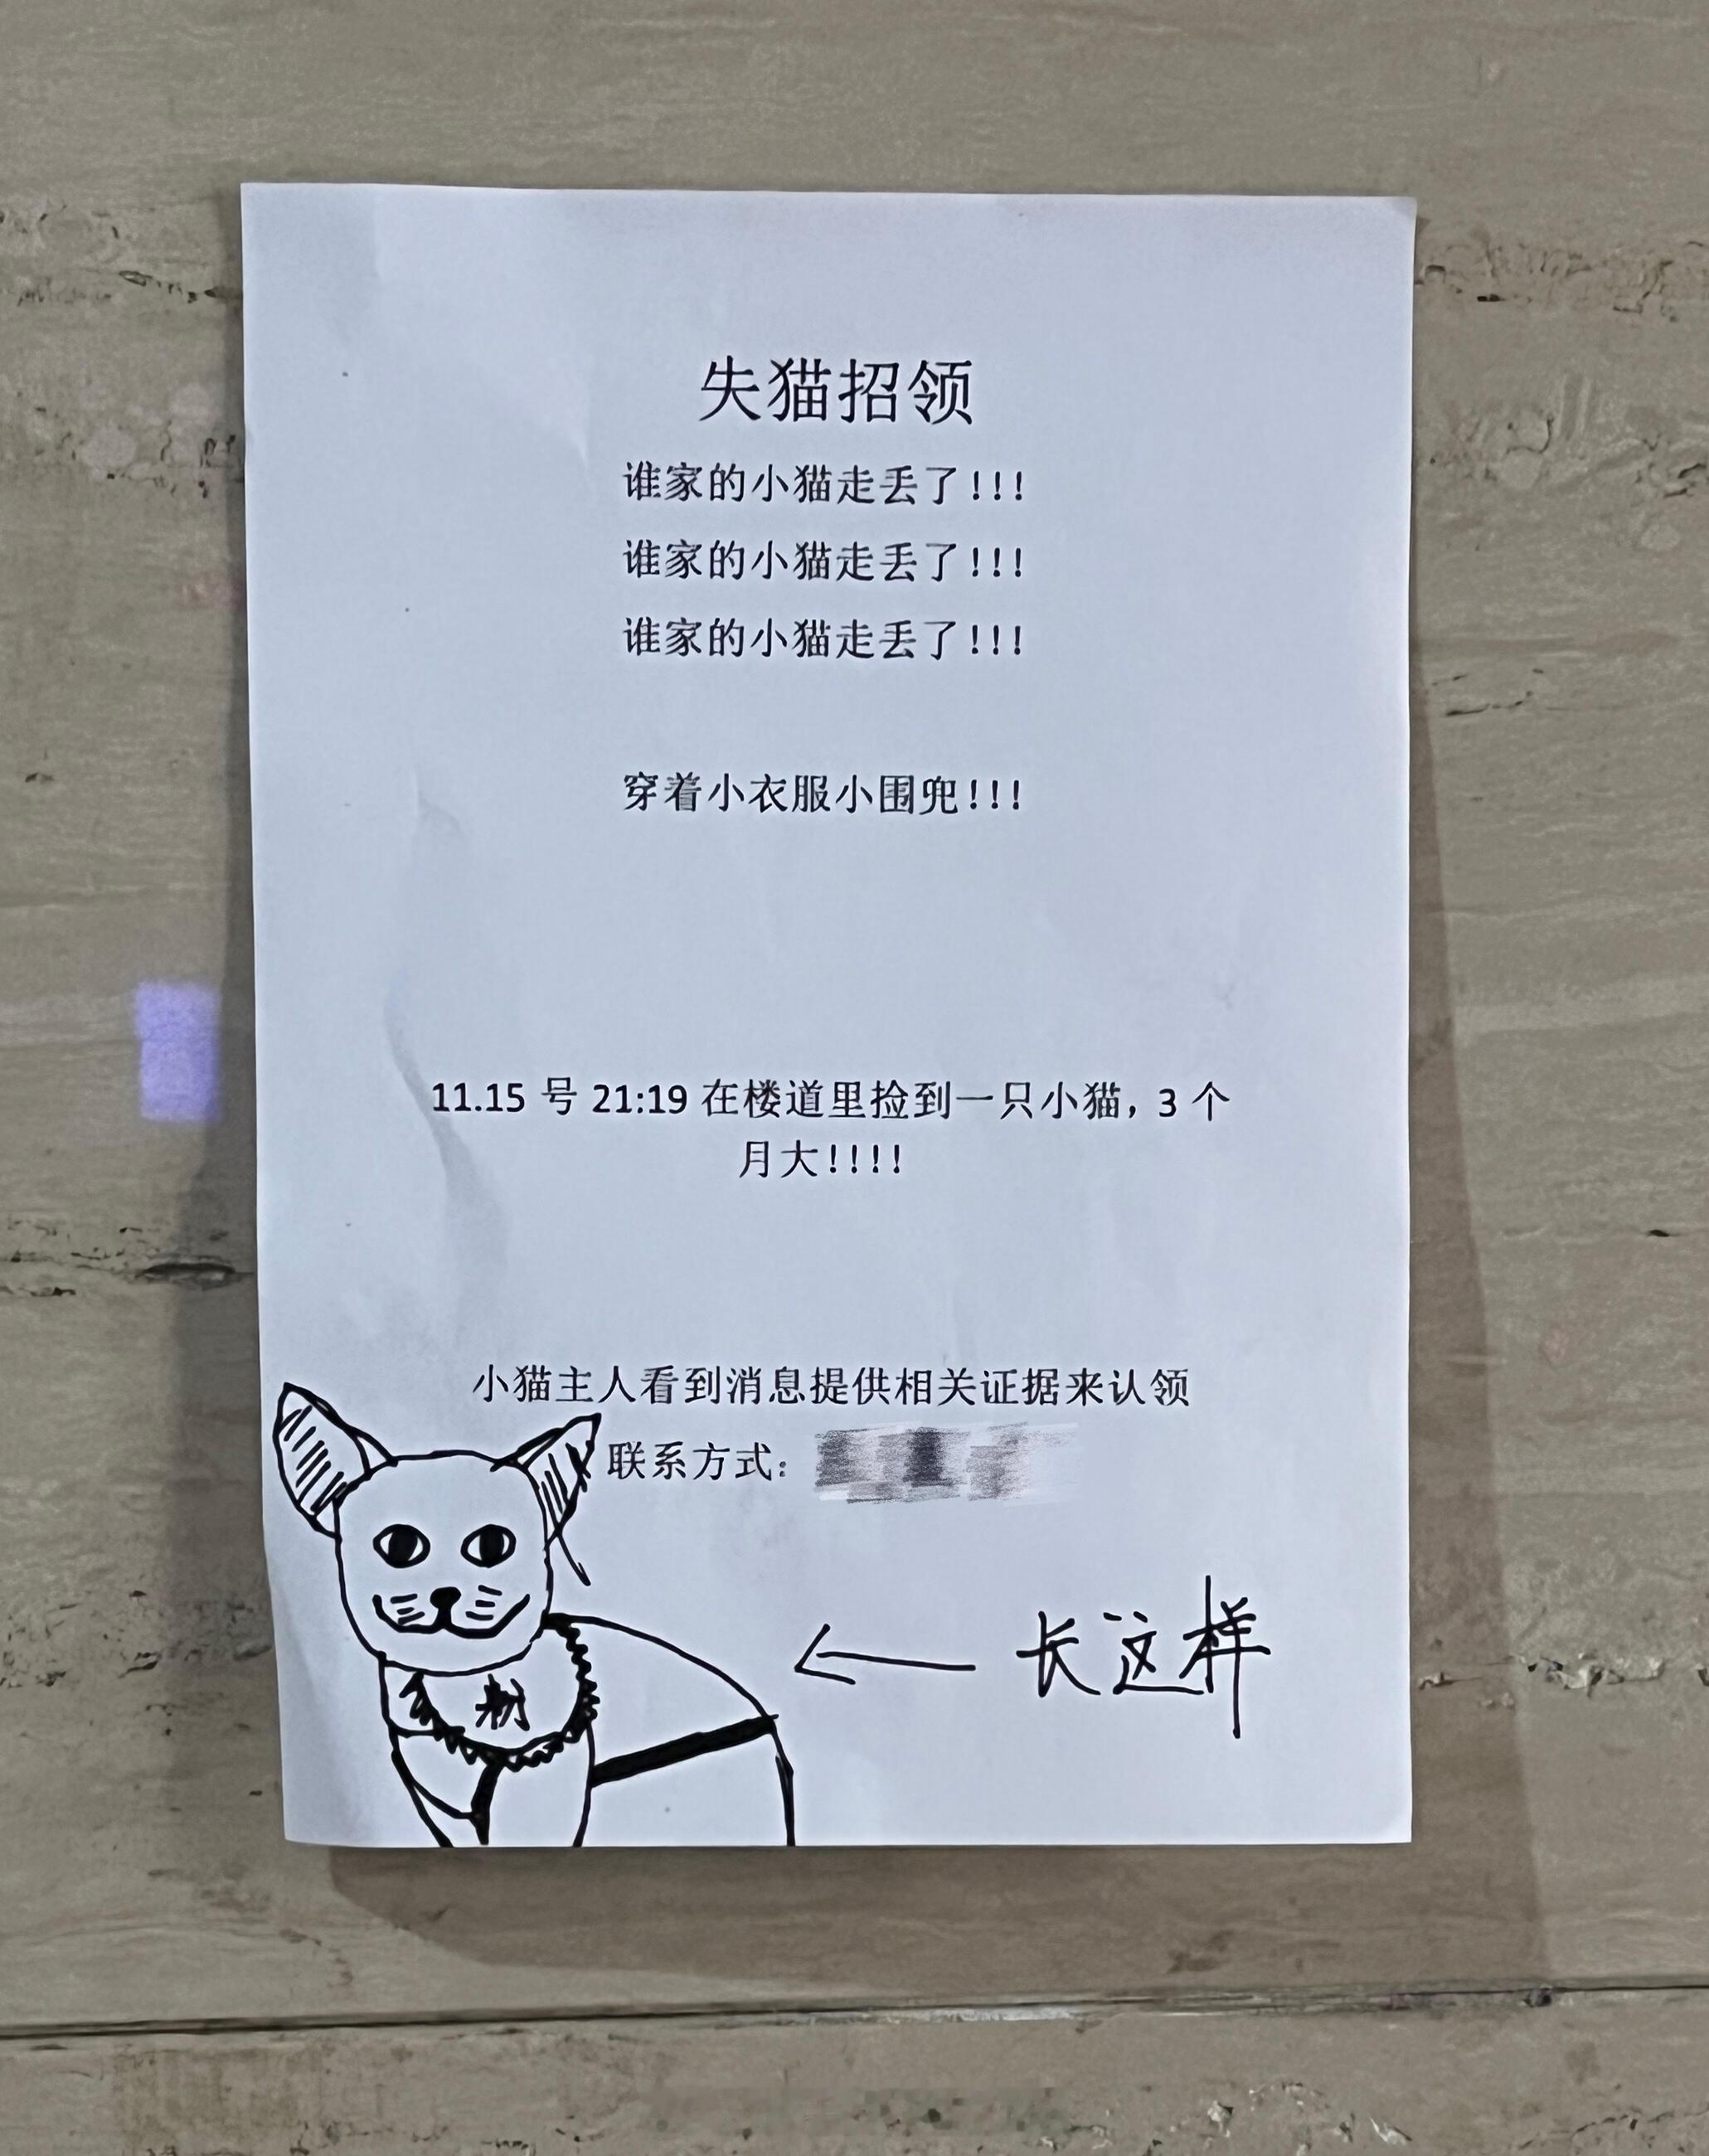 失猫招领
谁家的小猫走丢了!!!
谁家的小猫走丢了!!!
谁家的小猫走丢了!!!
穿着小衣服小围兜!!!
11.15 号 21:19 在楼道里捡到一只小猫，3 个
月大!!!!
小猫主人看到消息提供相关证据来认领
联系方式：
长这样